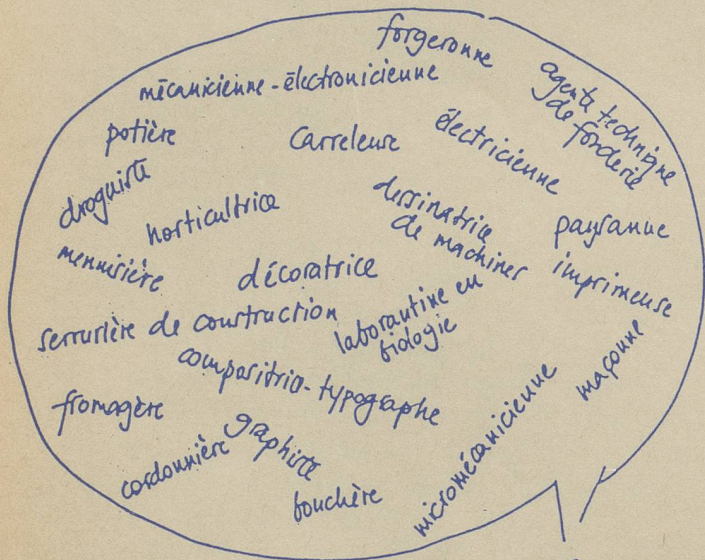 forgeronne
mécanicienne-électronicienne
agente technique
de fonderie
potière
Carreleuse
électricienne
droguiste
horticultrice
dessinatrice
de machines
paysanne
menuisière
décoratrice
imprimeuse
serrurière de construction
laborantine en
biologie
compositrice-typographe
maçonne
fromagère
graphiste
cordonnière
bouchère
micromécanicienne